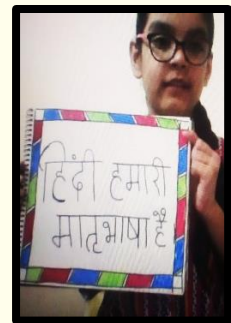 हिंदी हमारी
मातृभाषा है